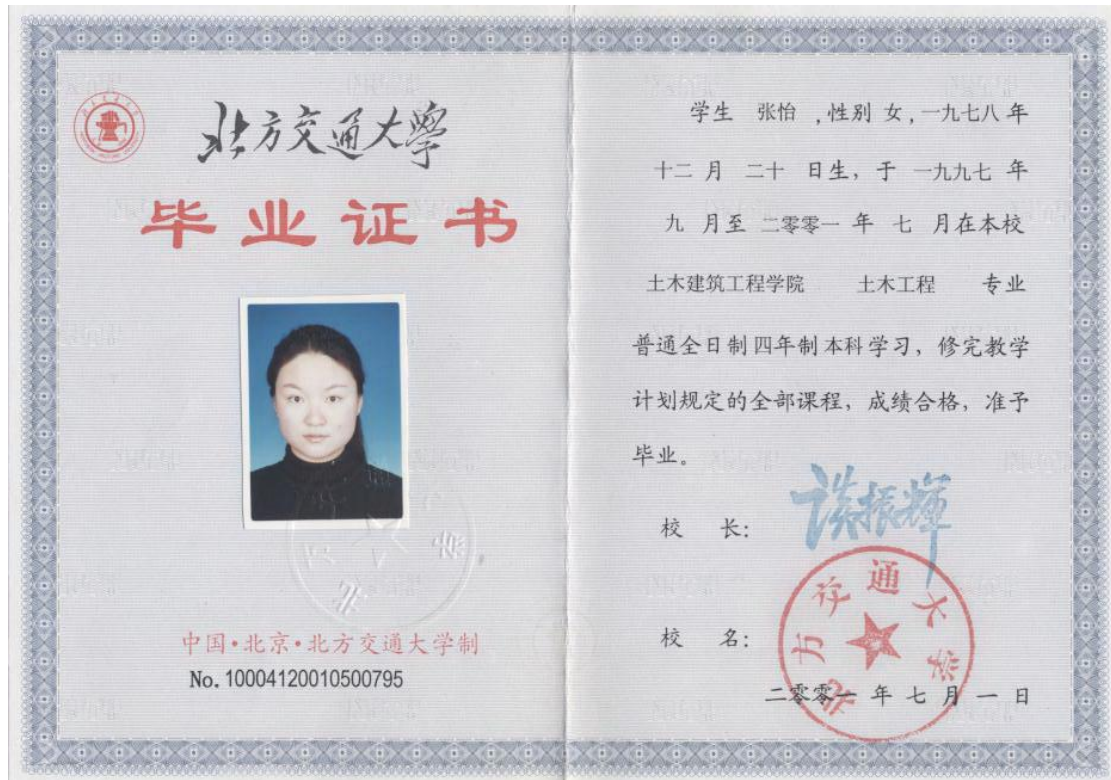 北方交通大學
毕业证书
中国·北京·北方交通大学制
No. 10004120010500795
学生 张怡 ,性别 女,一九七八 年
十二 月 二十 日生, 于 一九九七 年
九 月至 二零零一 年 七 月在本校
土木建筑工程学院 土木工程 专业
普通全日制四年制本科学习, 修完教学
计划规定的全部课程, 成绩合格, 准予
毕业。
校 长: 谈振辉
校 名:
北方交通大学
二零零一 年 七 月 一 日